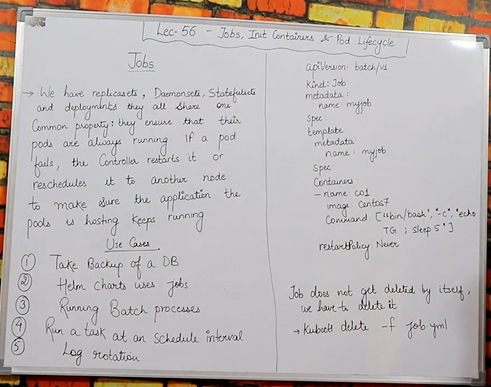 Lec-56 - Jobs, Init Containers & Pod Lifecycle
Jobs
→ We have replicasets, Daemonsets, Statefulsets
and deployments they all share one
Common property: they ensure that their
pods are always running If a pod
fails, the Controller restarts it or
reschedules it to another node
to make sure the application the
pods is hosting keeps running
Use Cases
① Take Backup of a DB
② Helm charts uses jobs
③ Running Batch processes
④ Run a task at an schedule interval
⑤ Log rotation
apiVersion: batch/v1
Kind: Job
metadata:
name: myjob
spec
template
metadata
name: myjob
spec
Containers
- name: c01
image Centos7
Command ["bin/bash", "-c". "echo
TG ; Sleep 5"]
restartPolicy Never
Job does not get deleted by itself,
we have to delete it
→ Kubectl delete -f job yml